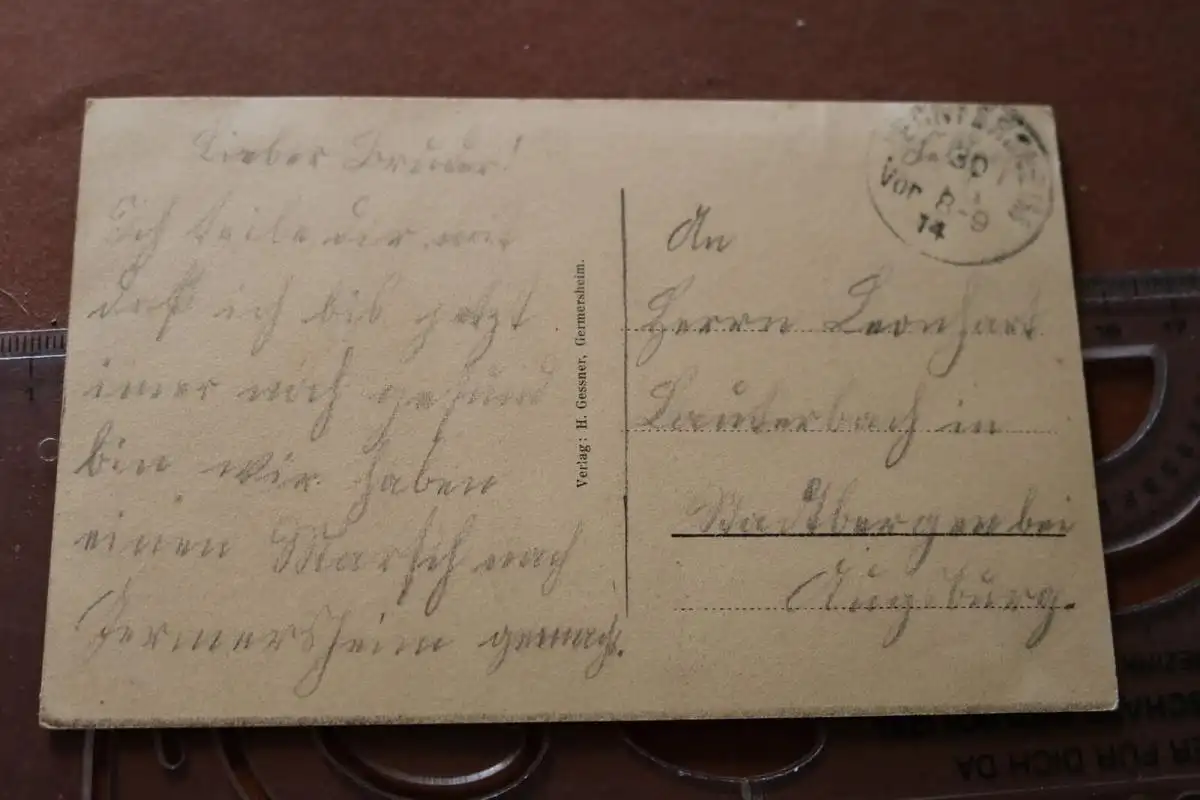 Lieber Bruder!
Ich teile dir mit
daß ich bis jetzt
imer noch gesund
bin wir haben
einen Marsch nach
Germersheim gemacht.
Verlag: H. Gessner, Germersheim.
30
Vor 8-9
14
An
Herrn Leonhart
Lauterbach in
Stadtbergen bei
Augsburg.
FÜR DICH DA